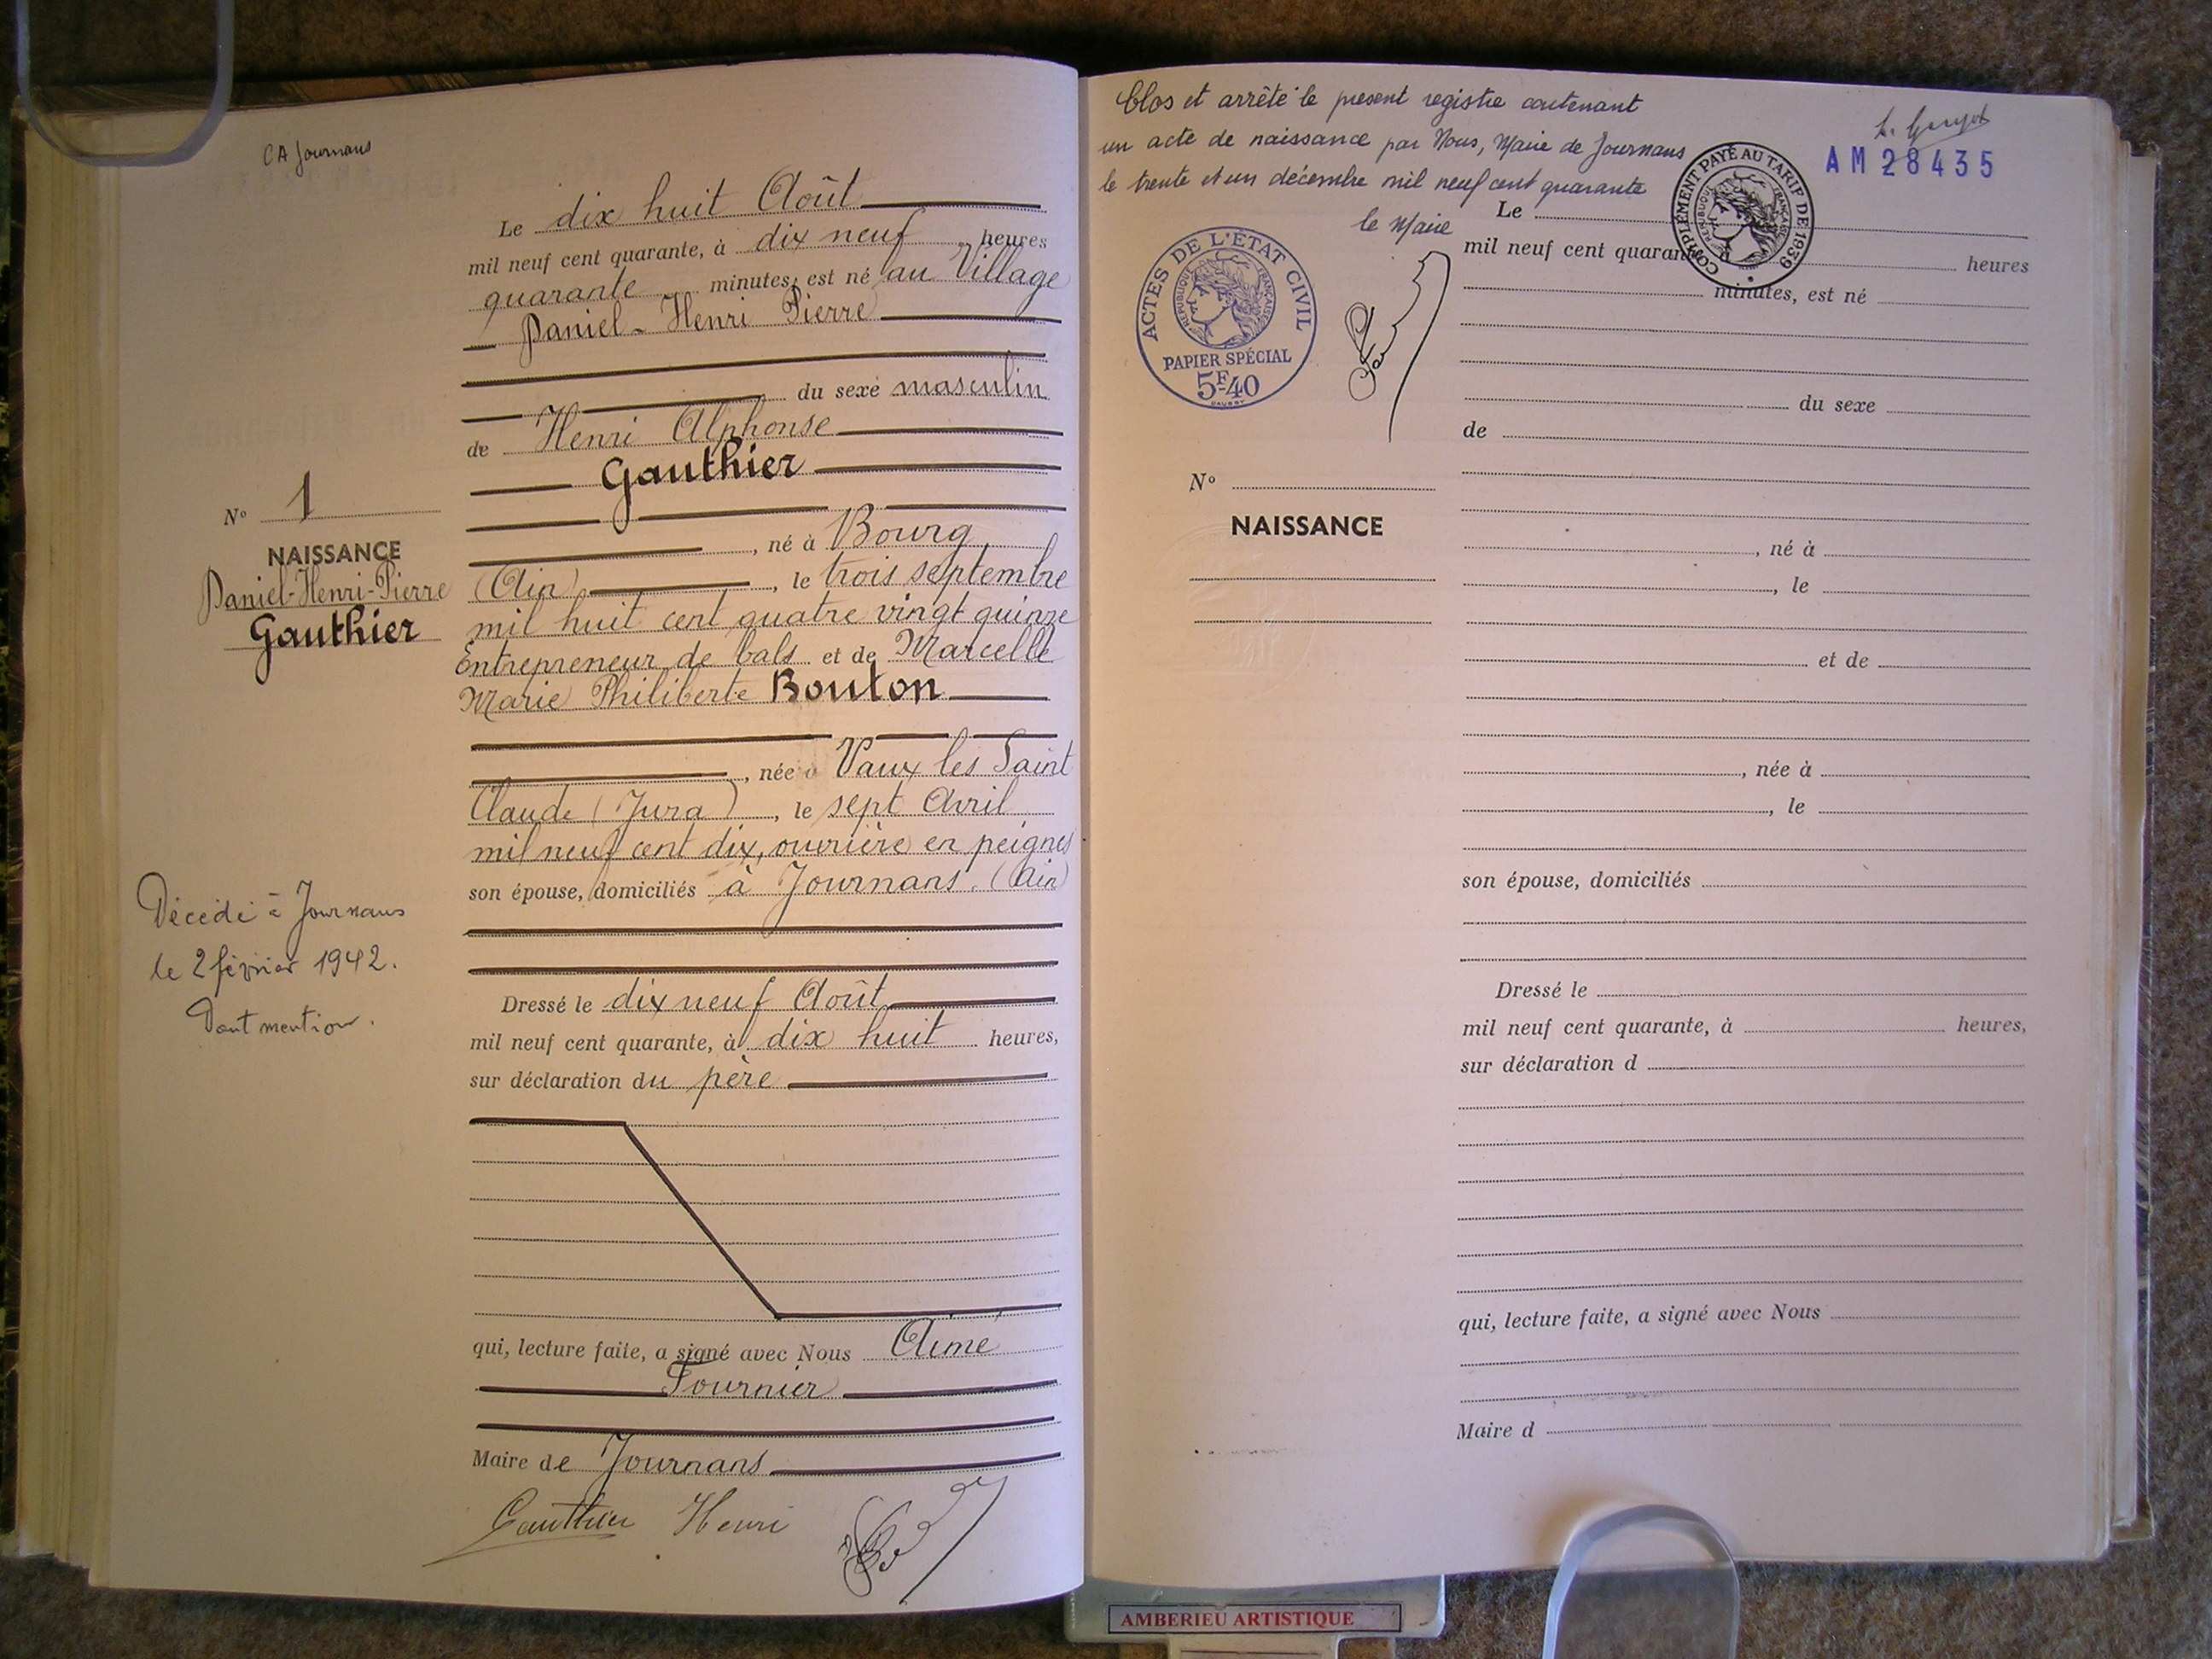 CA Journans
Le dix huit Août
mil neuf cent quarante, à dix neuf heures
quarante minutes, est né au Village
Daniel-Henri Pierre
du sexe masculin
de Henri Alphonse
Gauthier
, né à Bourg
(Ain), le trois septembre
mil huit cent quatre vingt quinze
Entrepreneur de bals et de Marcelle
Marie Philiberte Bouton
, née à Vaux les Saint
Claude (Jura), le sept Avril
mil neuf cent dix, ouvrière en peignes
son épouse, domiciliés à Journans. (Ain)
Dressé le dix neuf Août
mil neuf cent quarante, à dix huit heures,
sur déclaration du père
qui, lecture faite, a signé avec Nous Aimé
Fournier
Maire de Journans
Gauthier Henri
No 1
NAISSANCE
Daniel-Henri-Pierre
Gauthier
Décédé à Journans
le 2 février 1942.
Dont mention.
Clos et arrêté le present registre contenant
un acte de naissance par Nous, Maire de Journans
le trente et un décembre mil neuf cent quarante
le Maire
AM 28435
COMPLÉMENT PAYÉ AU TARIF DE 1939
RÉPUBLIQUE FRANÇAISE
ACTES DE L'ÉTAT CIVIL
RÉPUBLIQUE FRANÇAISE
PAPIER SPÉCIAL
5F40
Le
mil neuf cent quarante, à heures
minutes, est né
du sexe
de
No
NAISSANCE
, né à
, le
et de
, née à
, le
son épouse, domiciliés
Dressé le
mil neuf cent quarante, à heures,
sur déclaration d
qui, lecture faite, a signé avec Nous
Maire d
AMBERIEU ARTISTIQUE